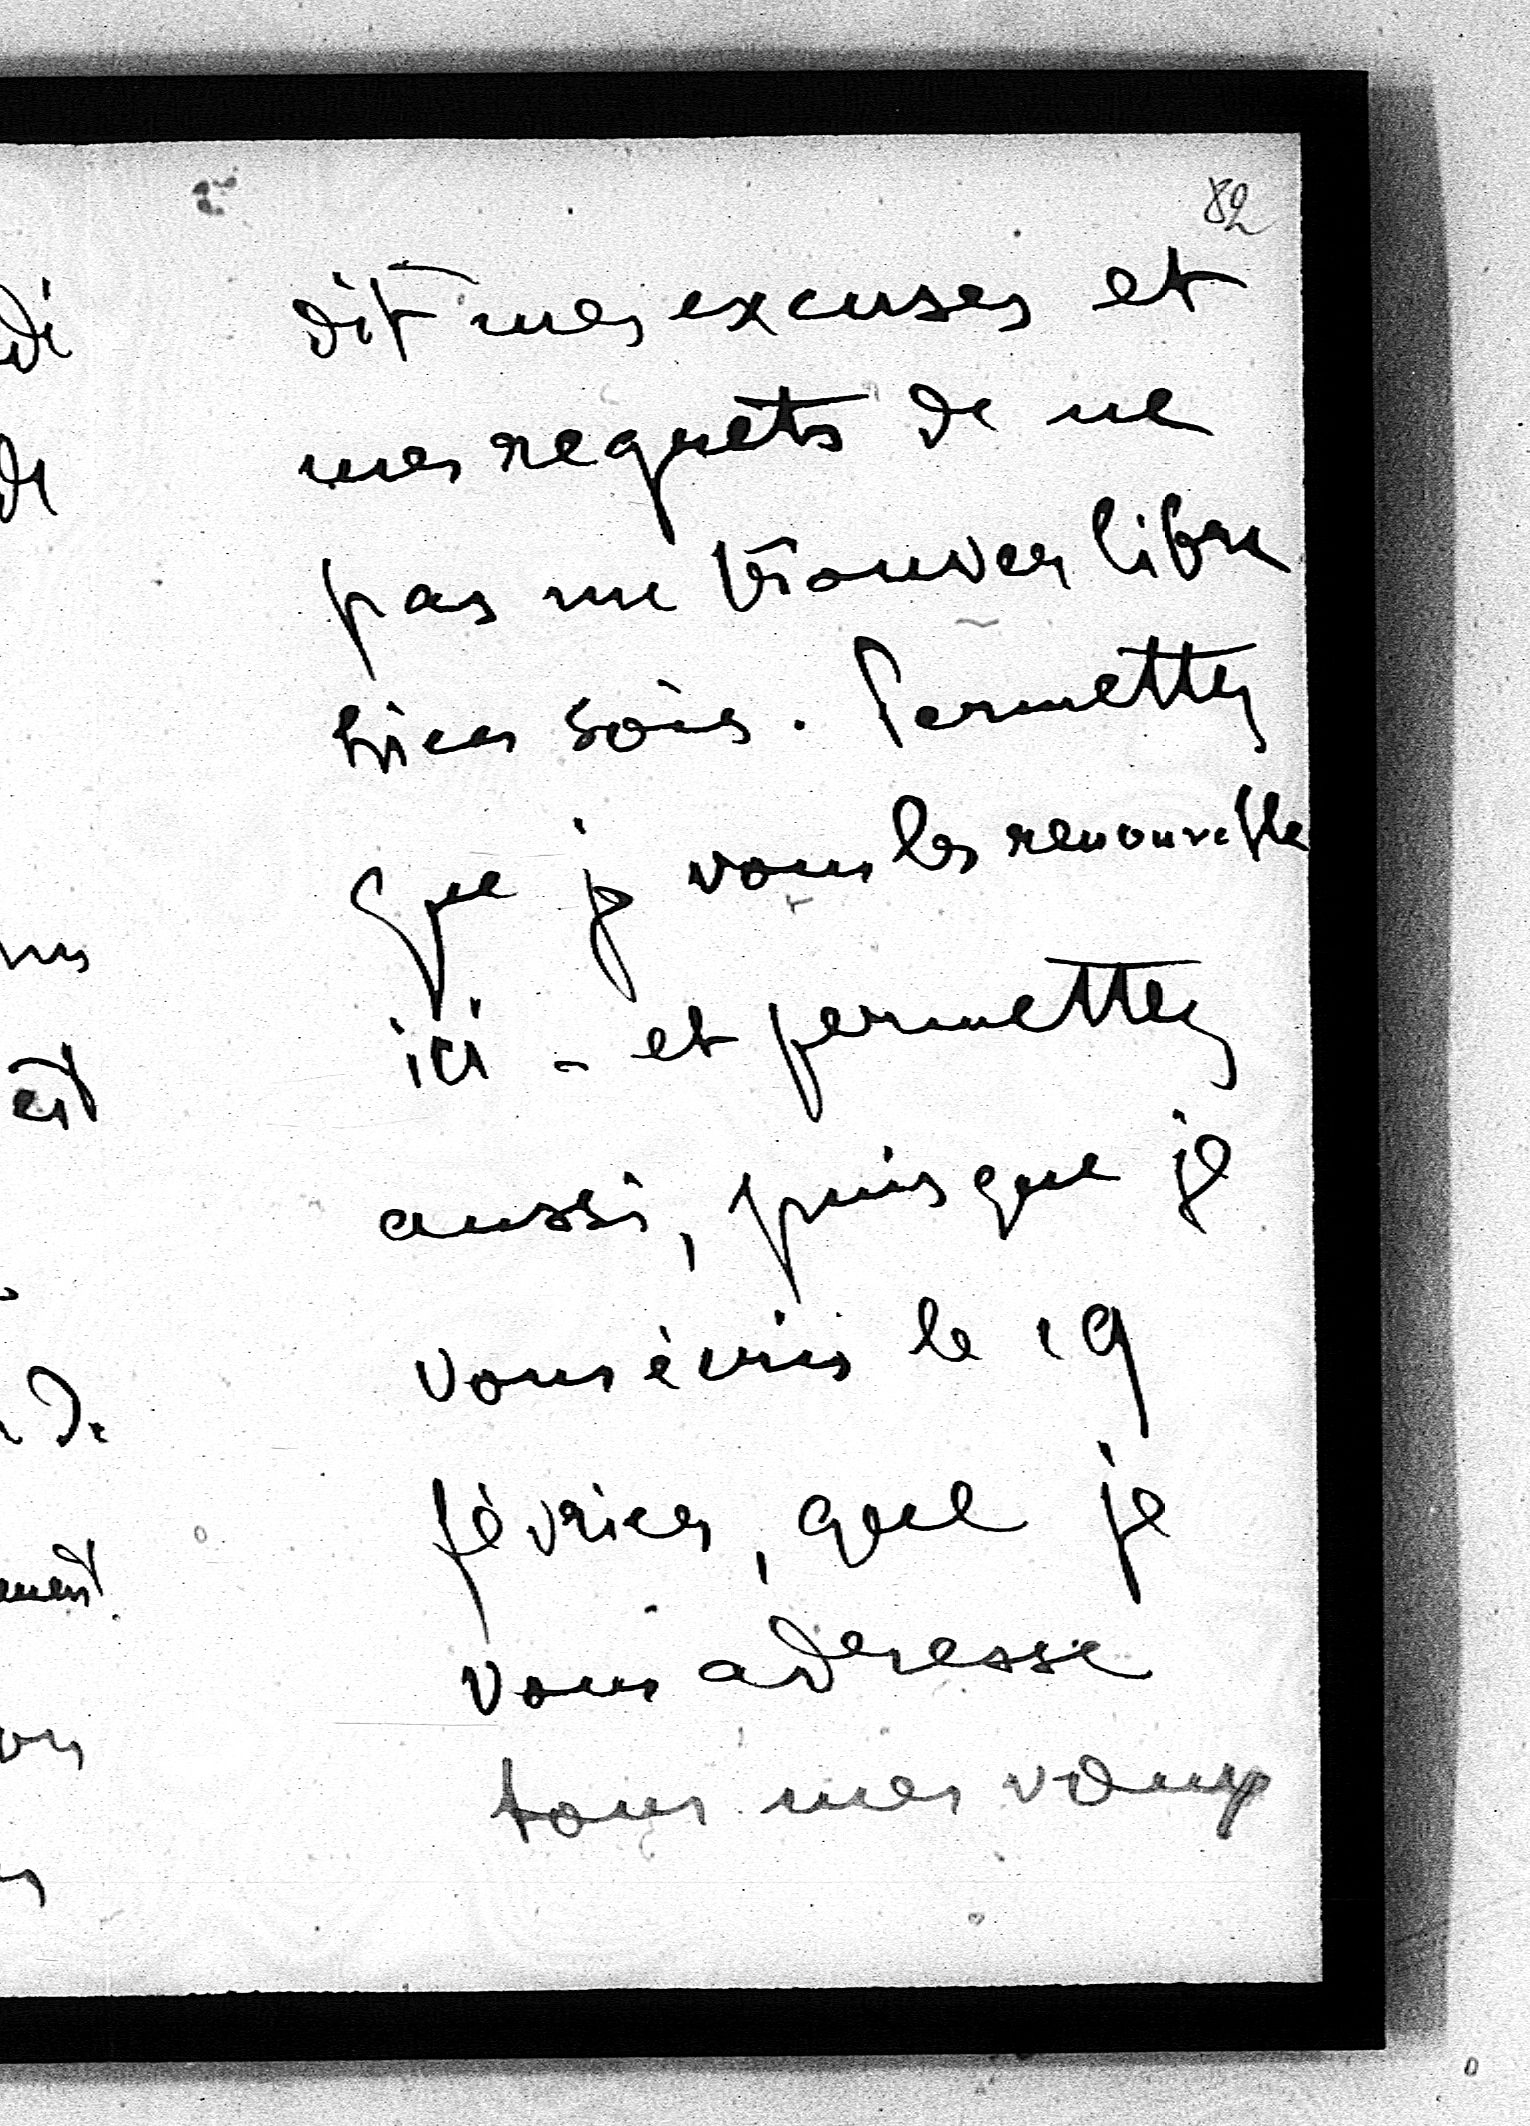 82
dit mes excuses et
mes regrets de ne
pas me trouver libre
hier soir. Permettez
que je vous les renouvelle
ici - et permettez
aussi, puisque je
vous écris le 19
février, que je
vous adresse
tous mes vœux